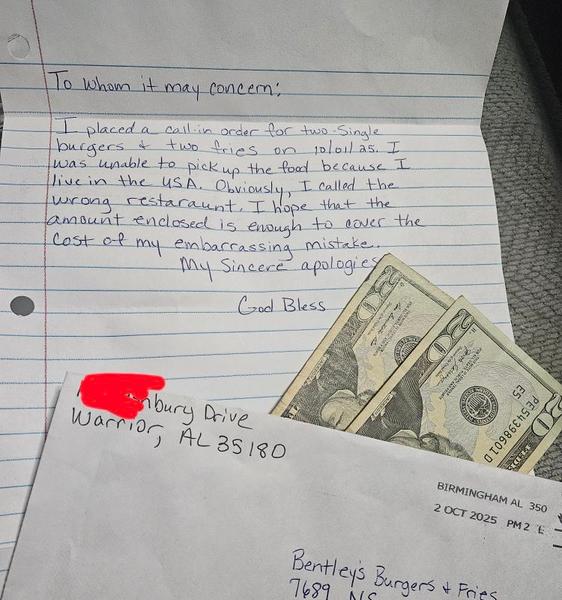 To whom it may concern:
I placed a call-in order for two single
burgers & two fries on 10/01/25. I
was unable to pick up the food because I
live in the USA. Obviously, I called the
wrong restaraunt. I hope that the
amount enclosed is enough to cover the
cost of my embarrassing mistake.
My Sincere apologies
God Bless
20
20
PE51398601D
E5
20
nbury Drive
Warrior, AL 35180
BIRMINGHAM AL 350
2 OCT 2025 PM 2
Bentley's Burgers & Fries
7689 NS